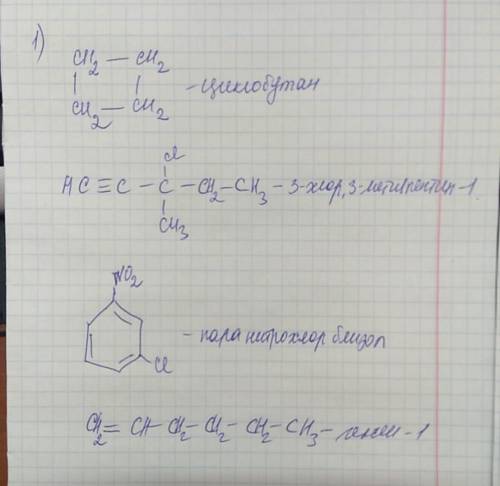 1)
CH₂ — CH₂
CH₂ — CH₂ - циклобутан
Cl
HC ≡ C — C — CH₂ — CH₃ - 3-хлор, 3-метилпентин-1
CH₃
NO₂
- пара нитрохлор бензол
Cl
CH₂ = CH — CH₂ — CH₂ — CH₂ — CH₃ - гексен-1